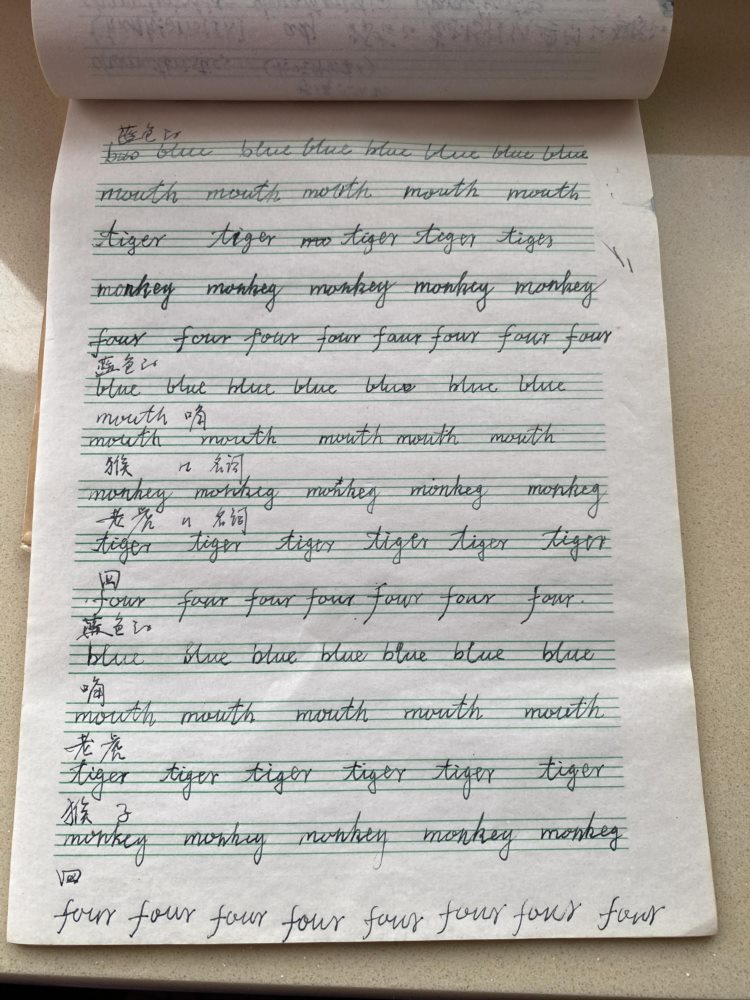 蓝色的
blue blue blue blue blue blue blue
mouth mouth mouth mouth mouth
tiger tiger mo tiger tiger tiger
monkey monkey monkey monkey monkey
four four four four four four four four
蓝色的
blue blue blue blue blue blue blue
mouth 嘴
mouth mouth mouth mouth mouth
猴 名词
monkey monkey monkey monkey monkey
老虎 名词
tiger tiger tiger tiger tiger tiger
四
four four four four four four four.
蓝色的
blue blue blue blue blue blue blue
嘴
mouth mouth mouth mouth mouth
老虎
tiger tiger tiger tiger tiger tiger
猴子
monkey monkey monkey monkey monkey
四
four four four four four four four four